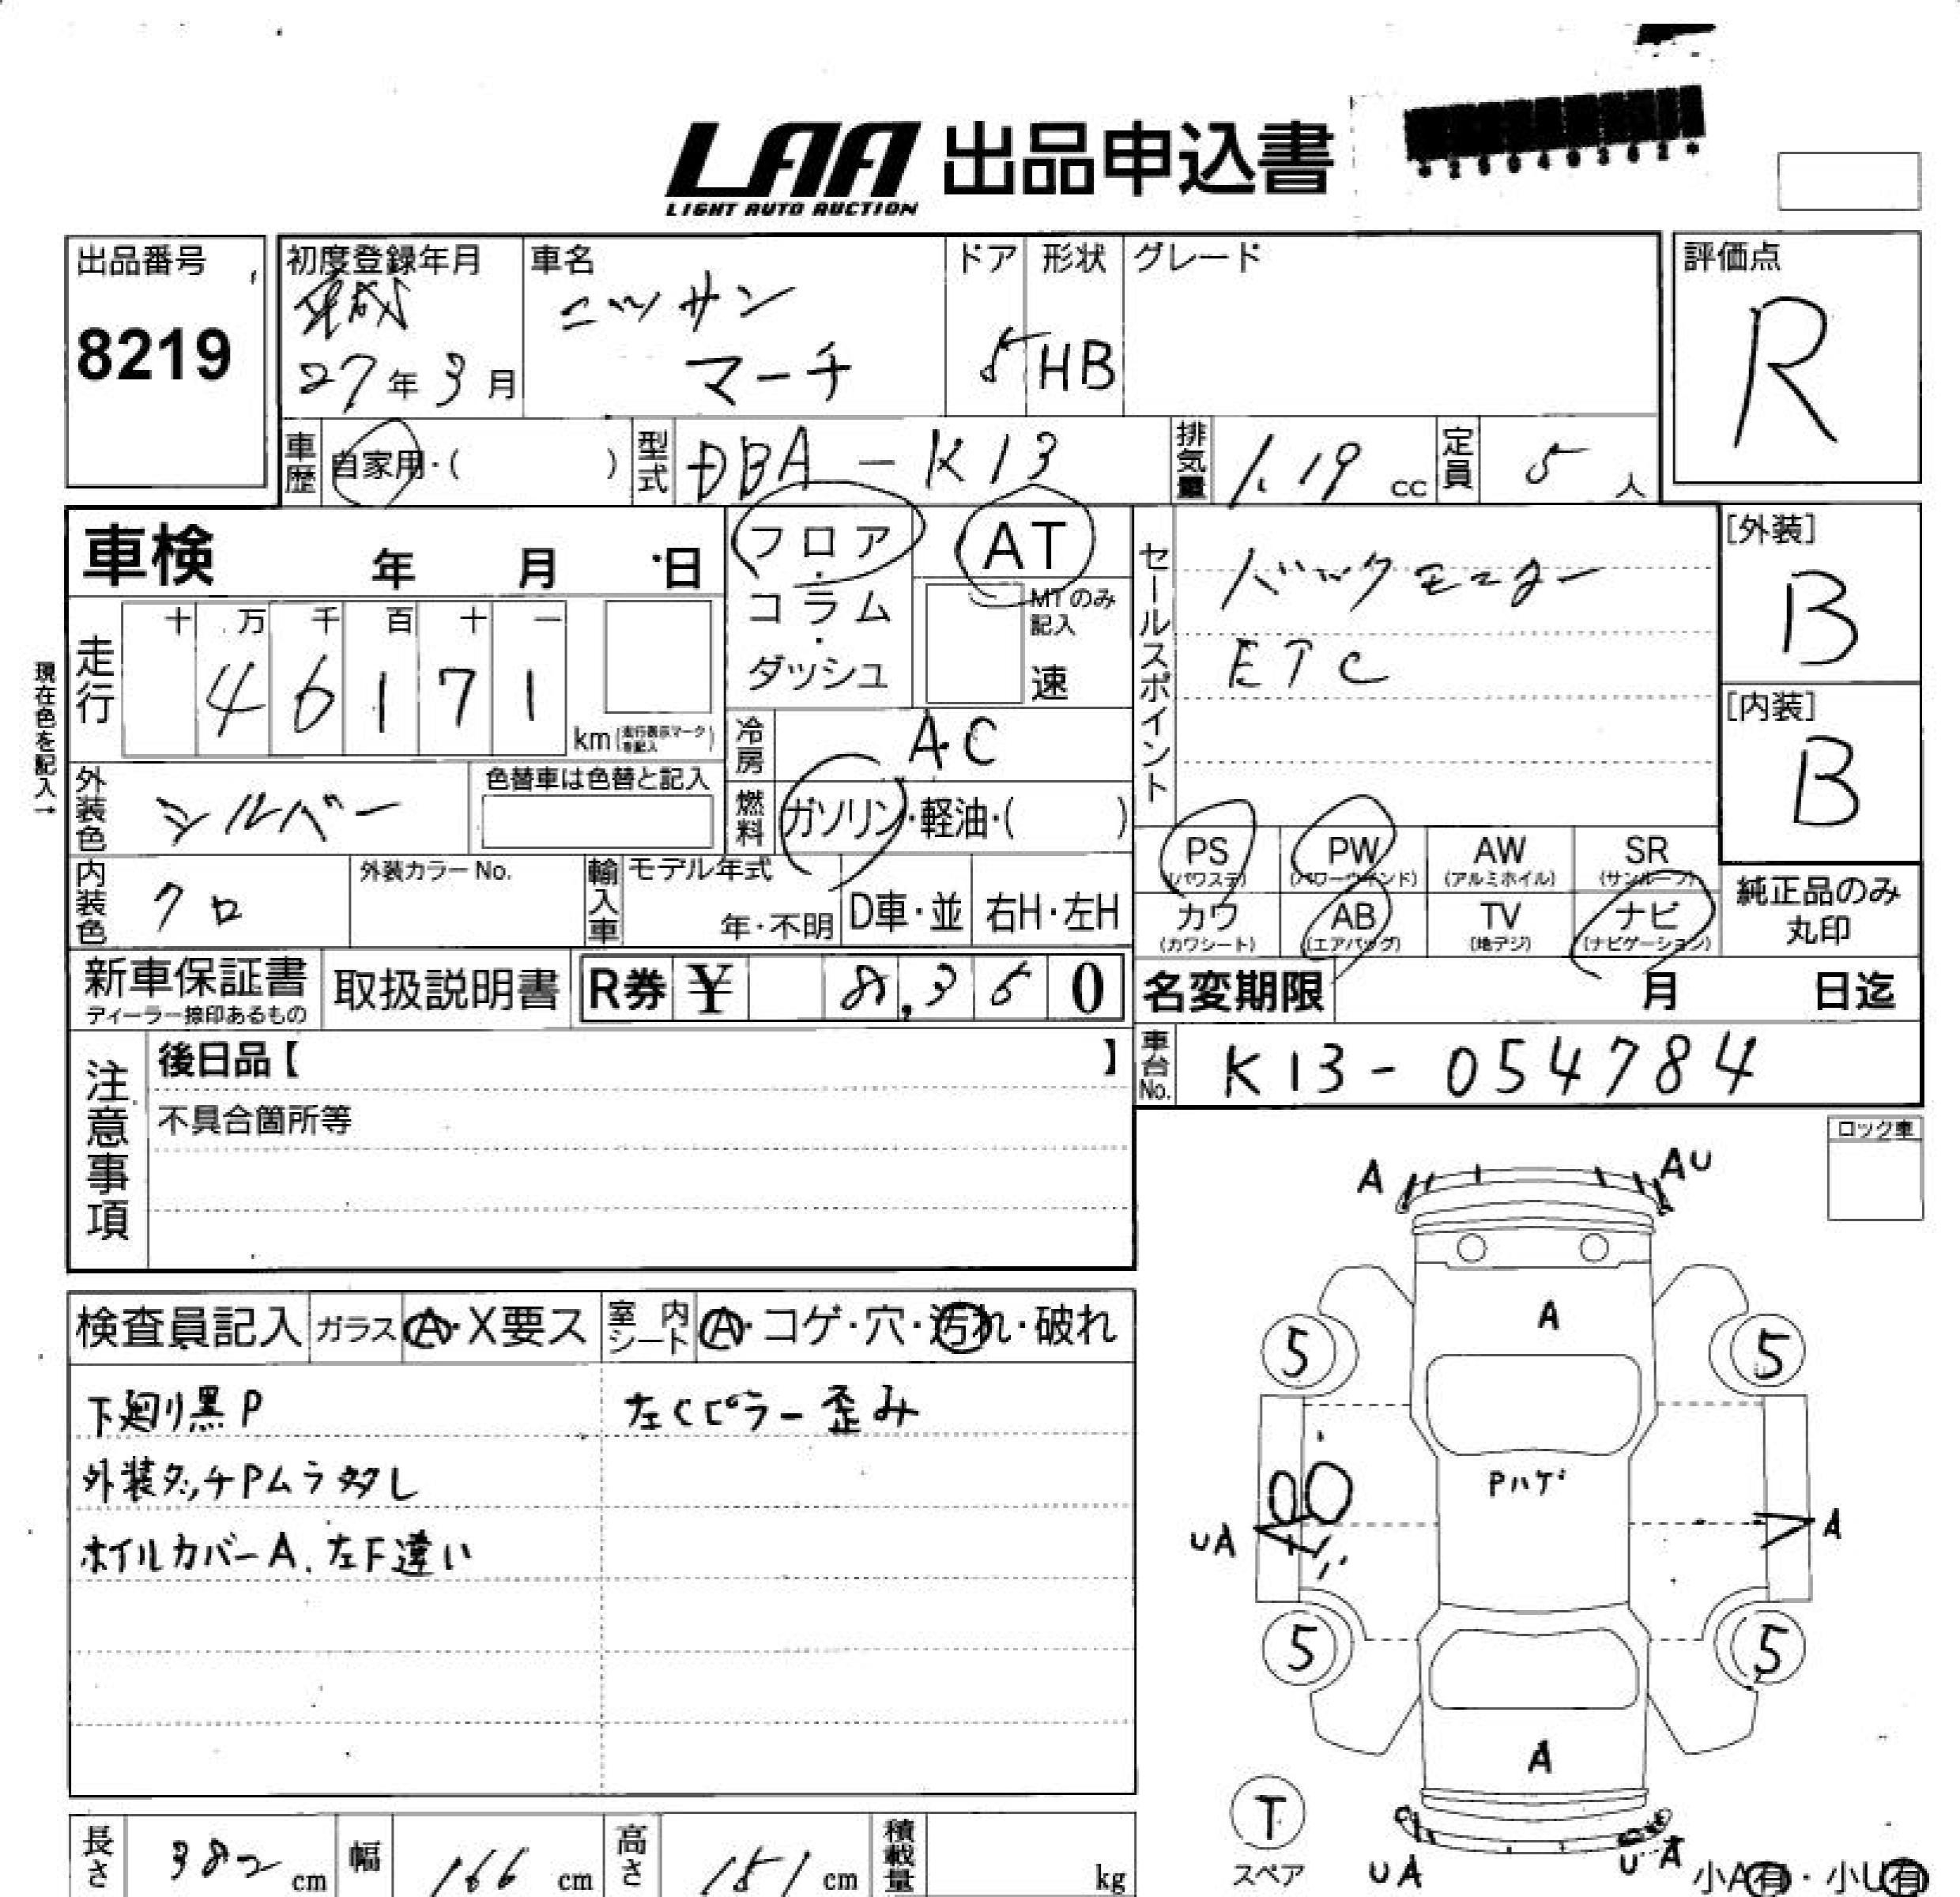 LAA 出品申込書
LIGHT AUTO AUCTION
出品番号
8219
初度登録年月
平成
27年3月
車名
ニッサン
マーチ
ドア
5
形状
HB
グレード
評価点
R
車歴
自家用・( )
型式
DBA-K13
排気量
1.19cc
定員
5人
車検 年 月 日
現在色を記入→
走行
十 万 千 百 十 一
4 6 1 7 1
km(走行表示マークを記入)
フロア・
コラム・
ダッシュ
AT
MTのみ記入
速
冷房
AC
燃料
ガソリン・軽油・( )
セールスポイント
バックモニター
ETC
[外装]
B
[内装]
B
外装色
シルバー
色替車は色替と記入
内装色
クロ
外装カラーNo.
輸入車
モデル年式
年・不明
D車・並
右H・左H
PS
(パワステ)
PW
(パワーウインド)
AW
(アルミホイル)
SR
(サンルーフ)
カワ
(カワシート)
AB
(エアバッグ)
TV
(地デジ)
ナビ
(ナビゲーション)
純正品のみ
丸印
新車保証書
ディーラー捺印あるもの
取扱説明書
R券 ¥ 8,360
名変期限 月 日迄
車台No.
K13-054784
注意事項
後日品【 】
不具合箇所等
ロック車
検査員記入
ガラス
A・X要ス
室内シート
A・コゲ・穴・汚れ・破れ
下廻り黒P
左Cピラー歪み
外装タッチPムラ多し
ホイルカバーA.左F違い
A
AU
A
5
5
Pハゲ
UA
A
5
5
A
T
スペア
UA
UA
小A有・小U有
長さ
382cm
幅
166cm
高さ
151cm
積載量
kg